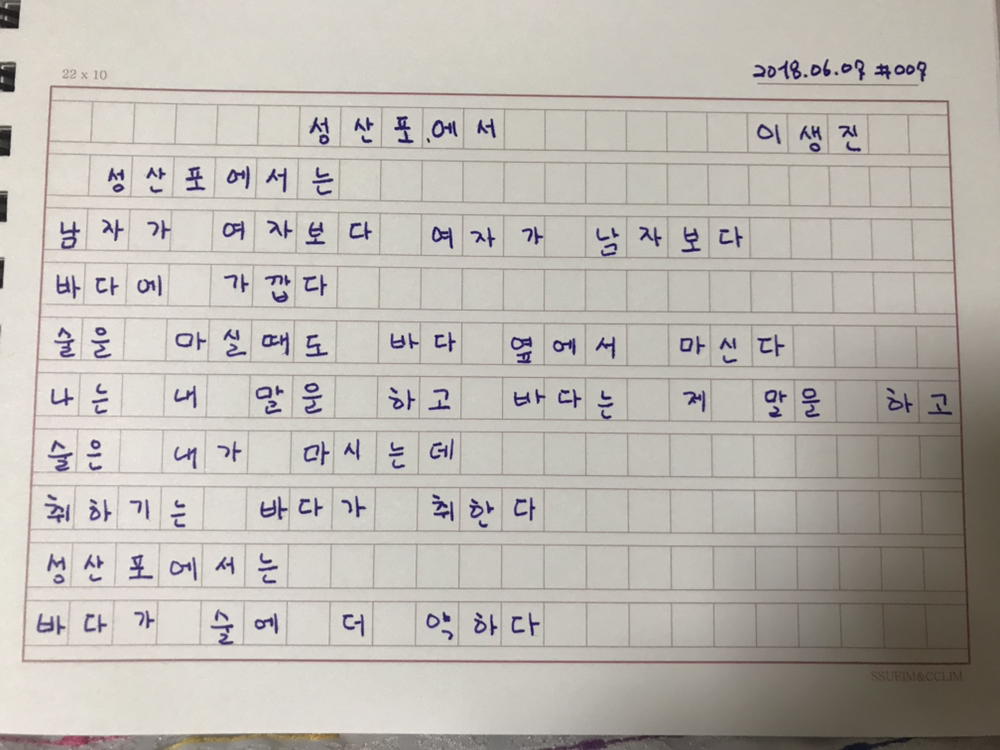 22 x 10
2018.06.07 #007
성산포.에서 이생진
성산포에서는
남자가 여자보다 여자가 남자보다
바다에 가깝다
술을 마실때도 바다 옆에서 마신다
나는 내 말을 하고 바다는 제 말을 하고
술은 내가 마시는데
취하기는 바다가 취한다
성산포에서는
바다가 술에 더 약하다
SSUEIM&CCLIM